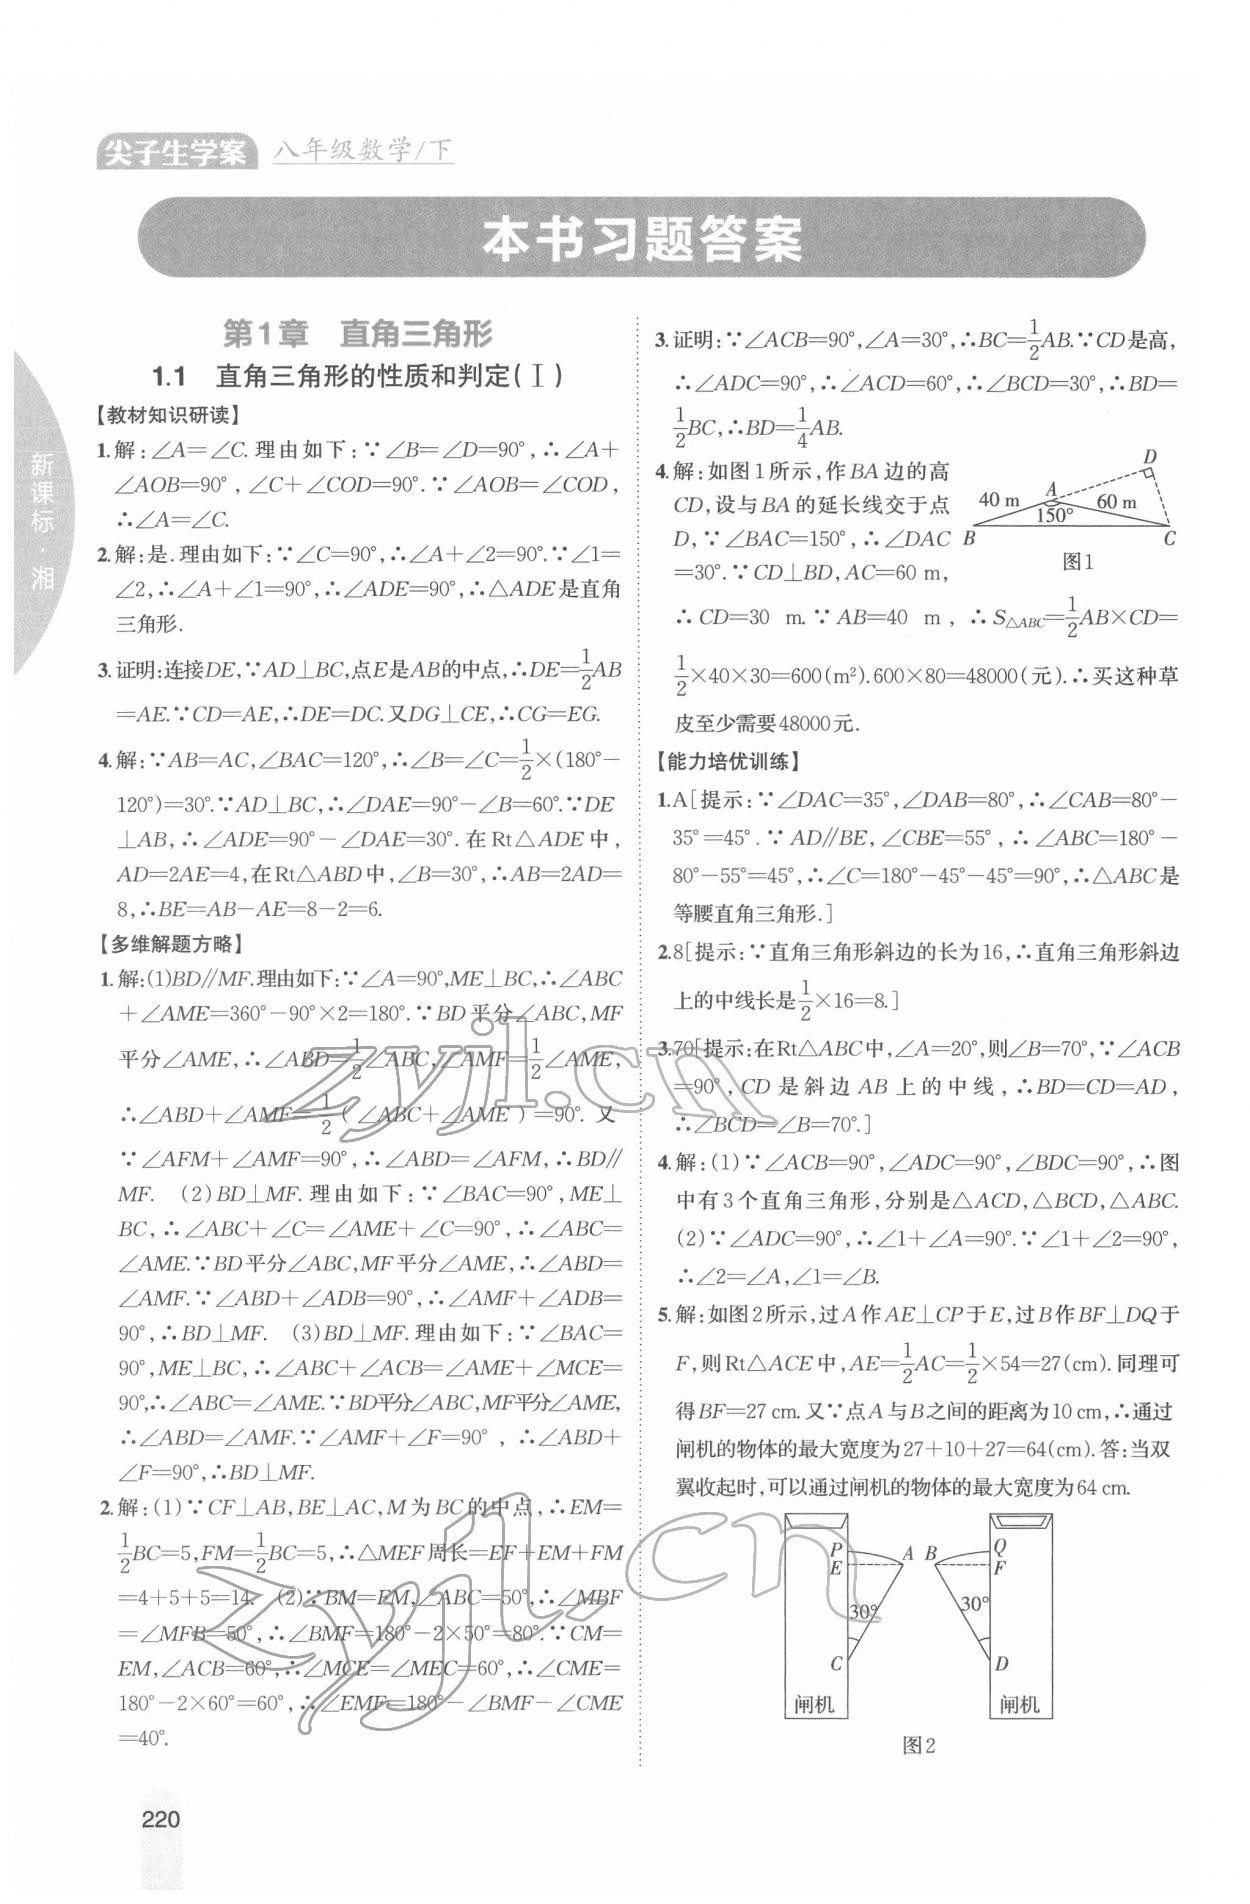 尖子生学案 八年级数学/下
本书习题答案
新课标·湘
第1章 直角三角形
1.1 直角三角形的性质和判定(Ⅰ)
【教材知识研读】
1.解:∠A=∠C.理由如下:∵∠B=∠D=90°,∴∠A+
∠AOB=90°,∠C+∠COD=90°.∵∠AOB=∠COD,
∴∠A=∠C.
2.解:是.理由如下:∵∠C=90°,∴∠A+∠2=90°.∵∠1=
∠2,∴∠A+∠1=90°,∴∠ADE=90°,∴△ADE是直角
三角形.
3.证明:连接DE,∵AD⊥BC,点E是AB的中点,∴DE=1/2AB
=AE.∵CD=AE,∴DE=DC.又DG⊥CE,∴CG=EG.
4.解:∵AB=AC,∠BAC=120°,∴∠B=∠C=1/2×(180°-
120°)=30°.∵AD⊥BC,∴∠DAE=90°-∠B=60°.∵DE
⊥AB,∴∠ADE=90°-∠DAE=30°.在Rt△ADE中,
AD=2AE=4,在Rt△ABD中,∠B=30°,∴AB=2AD=
8,∴BE=AB-AE=8-2=6.
【多维解题方略】
1.解:(1)BD∥MF.理由如下:∵∠A=90°,ME⊥BC,∴∠ABC
+∠AME=360°-90°×2=180°.∵BD平分∠ABC,MF
平分∠AME,∴∠ABD=1/2∠ABC,∠AMF=1/2∠AME,
∴∠ABD+∠AMF=1/2(∠ABC+∠AME)=90°.又
∵∠AFM+∠AMF=90°,∴∠ABD=∠AFM,∴BD∥
MF. (2)BD⊥MF.理由如下:∵∠BAC=90°,ME⊥
BC,∴∠ABC+∠C=∠AME+∠C=90°,∴∠ABC=
∠AME.∵BD平分∠ABC,MF平分∠AME,∴∠ABD=
∠AMF.∵∠ABD+∠ADB=90°,∴∠AMF+∠ADB=
90°,∴BD⊥MF. (3)BD⊥MF.理由如下:∵∠BAC=
90°,ME⊥BC,∴∠ABC+∠ACB=∠AME+∠MCE=
90°,∴∠ABC=∠AME.∵BD平分∠ABC,MF平分∠AME,
∴∠ABD=∠AMF.∵∠AMF+∠F=90°,∴∠ABD+
∠F=90°,∴BD⊥MF.
2.解:(1)∵CF⊥AB,BE⊥AC,M为BC的中点,∴EM=
1/2BC=5,FM=1/2BC=5,∴△MEF周长=EF+EM+FM
=4+5+5=14. (2)∵BM=EM,∠ABC=50°,∴∠MBF
=∠MFB=50°,∴∠BMF=180°-2×50°=80°.∵CM=
EM,∠ACB=60°,∴∠MCE=∠MEC=60°,∴∠CME=
180°-2×60°=60°,∴∠EMF=180°-∠BMF-∠CME
=40°.
3.证明:∵∠ACB=90°,∠A=30°,∴BC=1/2AB.∵CD是高,
∴∠ADC=90°,∴∠ACD=60°,∴∠BCD=30°,∴BD=
1/2BC,∴BD=1/4AB.
4.解:如图1所示,作BA边的高
CD,设与BA的延长线交于点
D,∵∠BAC=150°,∴∠DAC
=30°.∵CD⊥BD,AC=60 m,
∴CD=30 m.∵AB=40 m,∴S△ABC=1/2AB×CD=
1/2×40×30=600(m²).600×80=48000(元).∴买这种草
皮至少需要48000元.
D
40 m A 60 m
150°
B C
图1
【能力培优训练】
1.A[提示:∵∠DAC=35°,∠DAB=80°,∴∠CAB=80°-
35°=45°.∵AD∥BE,∠CBE=55°,∴∠ABC=180°-
80°-55°=45°,∴∠C=180°-45°-45°=90°,∴△ABC是
等腰直角三角形.]
2.8[提示:∵直角三角形斜边的长为16,∴直角三角形斜边
上的中线长是1/2×16=8.]
3.70[提示:在Rt△ABC中,∠A=20°,则∠B=70°,∵∠ACB
=90°,CD是斜边AB上的中线,∴BD=CD=AD,
∴∠BCD=∠B=70°.]
4.解:(1)∵∠ACB=90°,∠ADC=90°,∠BDC=90°,∴图
中有3个直角三角形,分别是△ACD,△BCD,△ABC.
(2)∵∠ADC=90°,∴∠1+∠A=90°.∵∠1+∠2=90°,
∴∠2=∠A,∠1=∠B.
5.解:如图2所示,过A作AE⊥CP于E,过B作BF⊥DQ于
F,则Rt△ACE中,AE=1/2AC=1/2×54=27(cm).同理可
得BF=27 cm.又∵点A与B之间的距离为10 cm,∴通过
闸机的物体的最大宽度为27+10+27=64(cm).答:当双
翼收起时,可以通过闸机的物体的最大宽度为64 cm.
P A B Q
E F
30° 30°
C D
闸机 闸机
图2
220
zyjl.cn
zyjl.cn